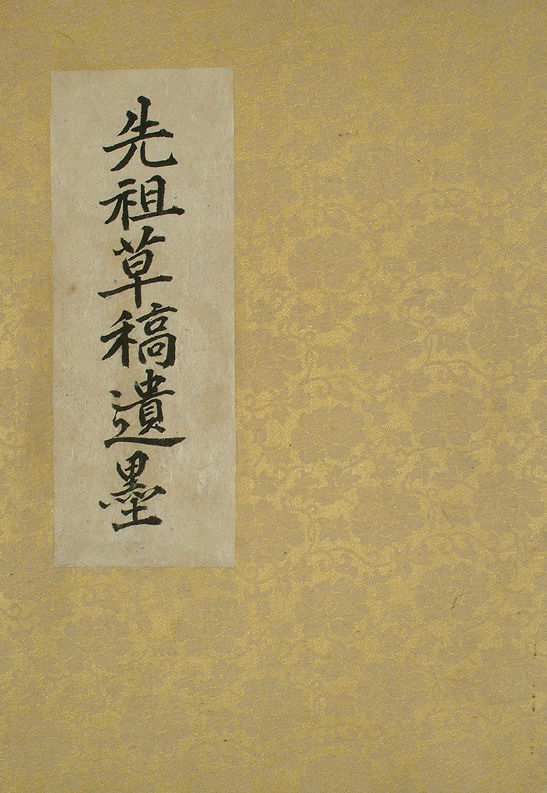 先祖草稿遺墨